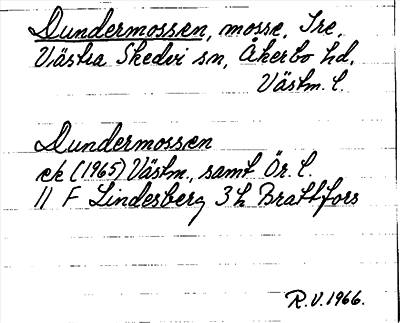 Dundermossen, mosse, Tre,
Västra Skedvi sn, Åkerbo hd,
Västm. l.
Dundermossen
ek (1965) Västm., samt Ör. l.
11 F Lindesberg 3 h Brattfors
R.V. 1966.